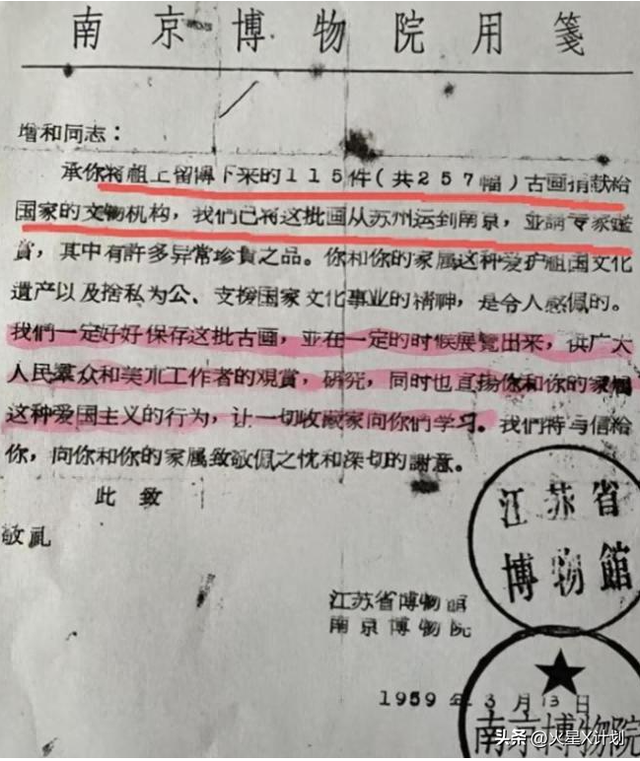 南京博物院用箋
增和同志：
承你将祖上留傳下来的115件(共257幅)古画捐献給
国家的文物机构，我們已将这批画从苏州运到南京，並請专家鑑
賞，其中有許多异常珍貴之品。你和你的家属这种爱护祖国文化
遗产以及捨私为公、支援国家文化事业的精神，是令人感佩的。
我們一定好好保存这批古画，並在一定的时候展覽出来，供广大
人民羣众和美朮工作者的观賞，研究，同时也宣揚你和你的家属
这种爱国主义的行为，让一切收藏家向你們学习。我們特与信給
你，向你和你的家属致敬佩之忱和深切的謝意。
此致
敬礼
江苏省博物館
南京博物院
1959年3月13日
江苏省
博物館
南京博物院
头条 @火星X计划